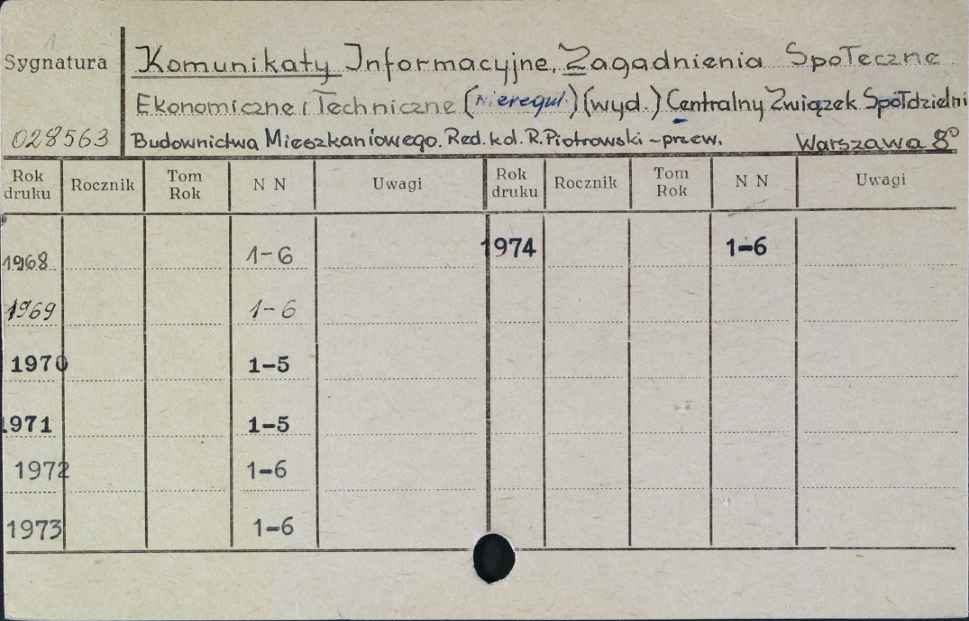 Sygnatura
Komunikaty Informacyjne, Zagadnienia Społeczne
Ekonomiczne i Techniczne (nieregul.) (wyd.) Centralny Związek Spółdzielni
028563 Budownictwa Mieszkaniowego. Red. kol. R. Piotrowski - przew. Warszawa 8°
Rok druku Rocznik Tom Rok N N Uwagi Rok druku Rocznik Tom Rok N N Uwagi
1968 1-6 1974 1-6
1969 1-6
1970 1-5
1971 1-5
1972 1-6
1973 1-6